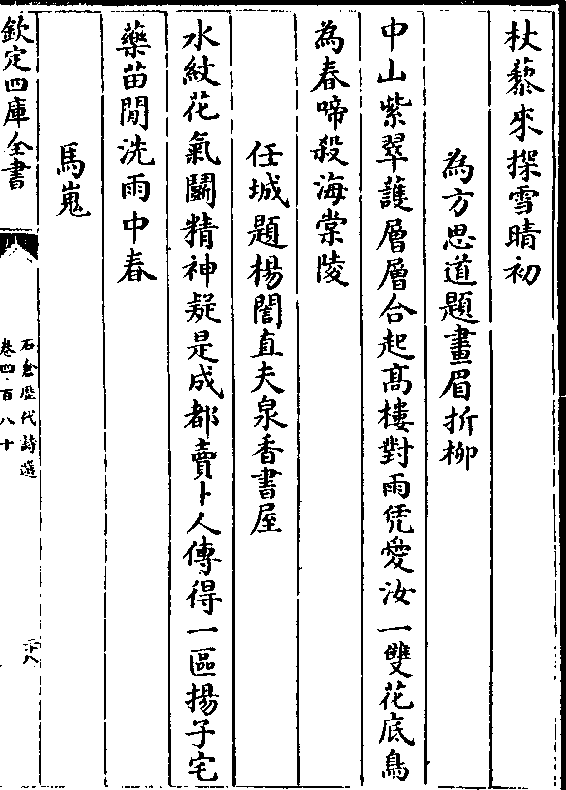 杖藜來探雪晴初
為方思道題畫眉折柳
中山紫翠護層層合起髙樓對雨凭愛汝一雙花底鳥
為春啼殺海棠陵
任城題楊誾直夫泉香書屋
水紋花氣鬭精神疑是成都賣卜人傳得一區揚子宅
藥苗閒洗雨中春
馬嵬
欽定四庫全書
石倉歴代詩選
卷四百八十